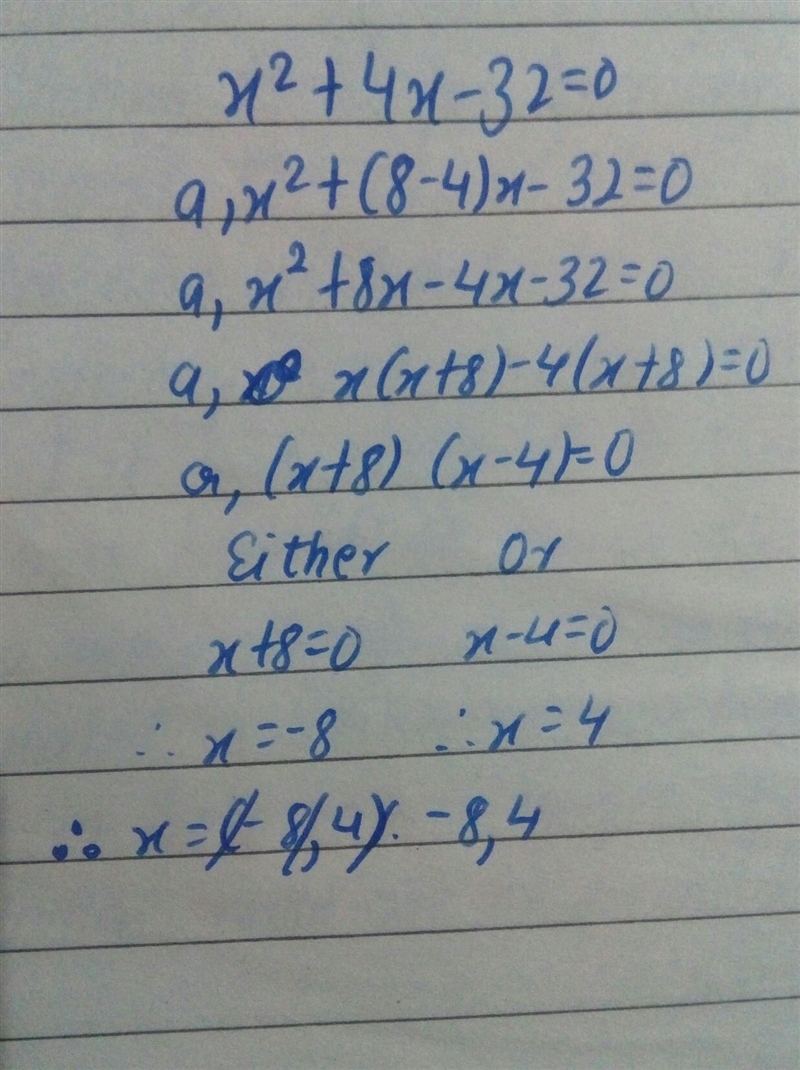 x²+4x-32=0
a, x²+(8-4)x-32=0
a, x²+8x-4x-32=0
a, x(x+8)-4(x+8)=0
or, (x+8) (x-4)=0
Either Or
x+8=0 x-4=0
∴ x=-8 ∴x=4
∴ x=(-8,4). -8,4